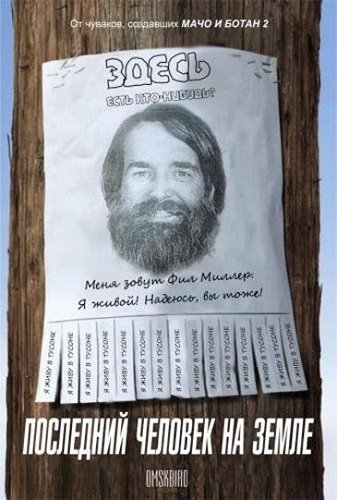 От чуваков, создавших МАЧО И БОТАН 2
ЗДЕСЬ
ЕСТЬ КТО-НИБУДЬ?
Меня зовут Фил Миллер.
Я живой! Надеюсь, вы тоже!
Я ЖИВУ В ТУСОНЕ
Я ЖИВУ В ТУСОНЕ
Я ЖИВУ В ТУСОНЕ
Я ЖИВУ В ТУСОНЕ
Я ЖИВУ В ТУСОНЕ
Я ЖИВУ В ТУСОНЕ
Я ЖИВУ В ТУСОНЕ
Я ЖИВУ В ТУСОНЕ
Я ЖИВУ В ТУСОНЕ
Я ЖИВУ В ТУСОНЕ
Я ЖИВУ В ТУСОНЕ
ПОСЛЕДНИЙ ЧЕЛОВЕК НА ЗЕМЛЕ
OMSKBIRD